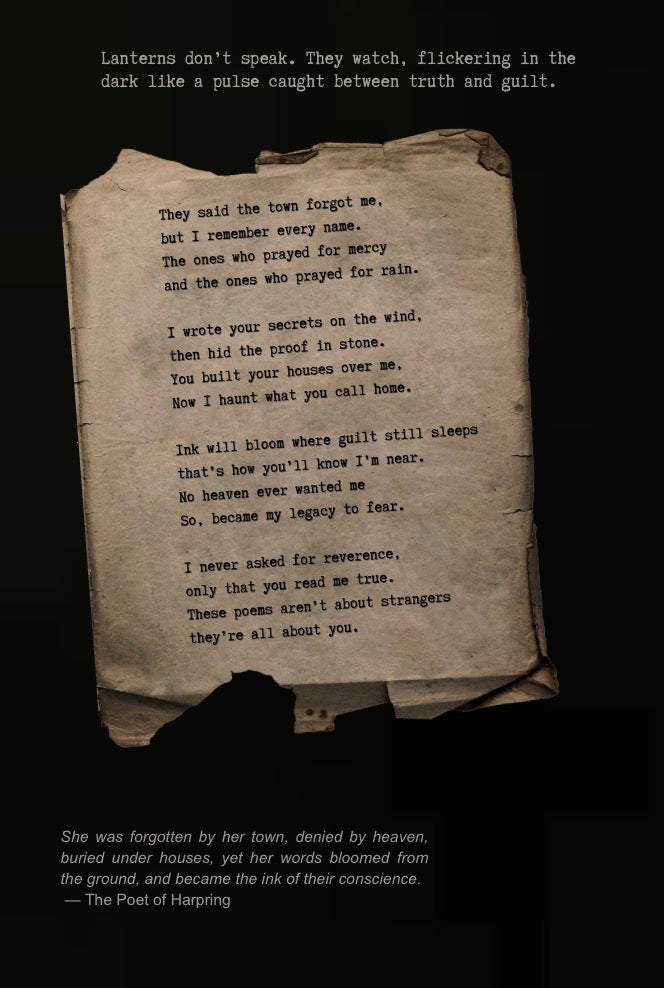 Lanterns don't speak. They watch, flickering in the
dark like a pulse caught between truth and guilt.
They said the town forgot me,
but I remember every name.
The ones who prayed for mercy
and the ones who prayed for rain.
I wrote your secrets on the wind,
then hid the proof in stone.
You built your houses over me,
Now I haunt what you call home.
Ink will bloom where guilt still sleeps
that's how you'll know I'm near.
No heaven ever wanted me
So, became my legacy to fear.
I never asked for reverence,
only that you read me true.
These poems aren't about strangers
they're all about you.
She was forgotten by her town, denied by heaven,
buried under houses, yet her words bloomed from
the ground, and became the ink of their conscience.
— The Poet of Harpring